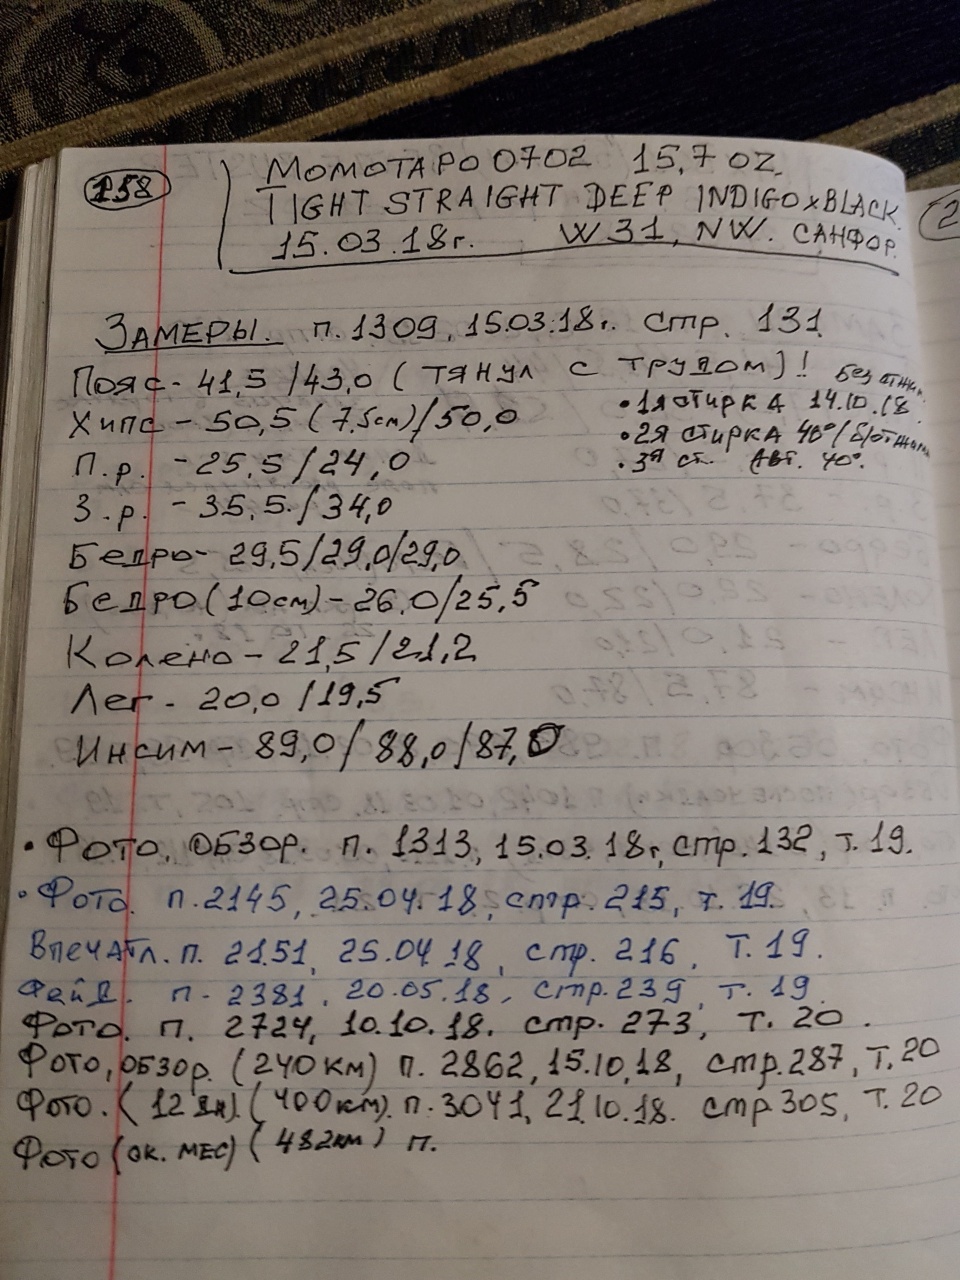 158
МОМОТАРО 0702 15,7 OZ.
TIGHT STRAIGHT DEEP INDIGO x BLACK.
15.03.18г. W31, NW. САНФОР.
ЗАМЕРЫ. П. 1309, 15.03.18г. СТР. 131
ПОЯС - 41,5 / 43,0 ( ТЯНУЛ С ТРУДОМ)! БЕЗ ОТЖИМ
ХИПС - 50,5 (7,5см) / 50,0 • 1я СТИРКА 14.10.18
П.р. - 25,5 / 24,0 • 2я СТИРКА 40° / Б/ОТЖИМ
З.р. - 35,5 / 34,0 • 3я СТ. АВТ. 40°.
БЕДРО - 29,5/29,0/29,0
БЕДРО (10см) - 26,0/25,5
КОЛЕНО - 21,5 / 21,2
ЛЕГ - 20,0 / 19,5
ИНСИМ - 89,0 / 88,0 / 87,0
• ФОТО, ОБЗОР. П. 1313, 15.03.18г, СТР. 132, Т. 19.
• ФОТО. П. 2145, 25.04.18, СТР. 215, Т. 19.
ВПЕЧАТЛ. П. 2151, 25.04 18, СТР. 216, Т. 19.
ФЕЙД. П. 2381, 20.05.18, СТР. 239, Т. 19.
ФОТО. П. 2724, 10.10.18. СТР. 273, Т. 20.
ФОТО, ОБЗОР. (240 КМ) П. 2862, 15.10.18, СТР. 287, Т. 20
ФОТО. ( 12 ДН) (400 КМ). П. 3041, 21.10.18. СТР 305, Т. 20
ФОТО (ОК. МЕС) ( 482КМ) П.